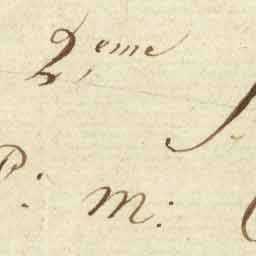 2,eme
P: m: